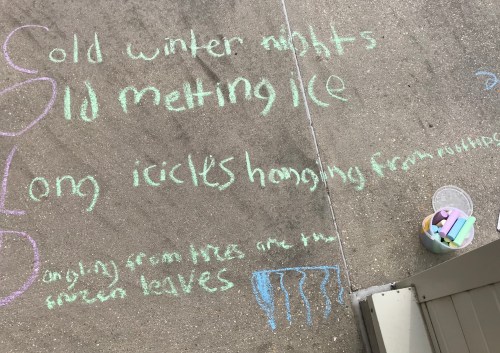 Cold winter nights
Old melting ice
Long icicles hanging from rooftops
Dangling from trees are the
frozen leaves